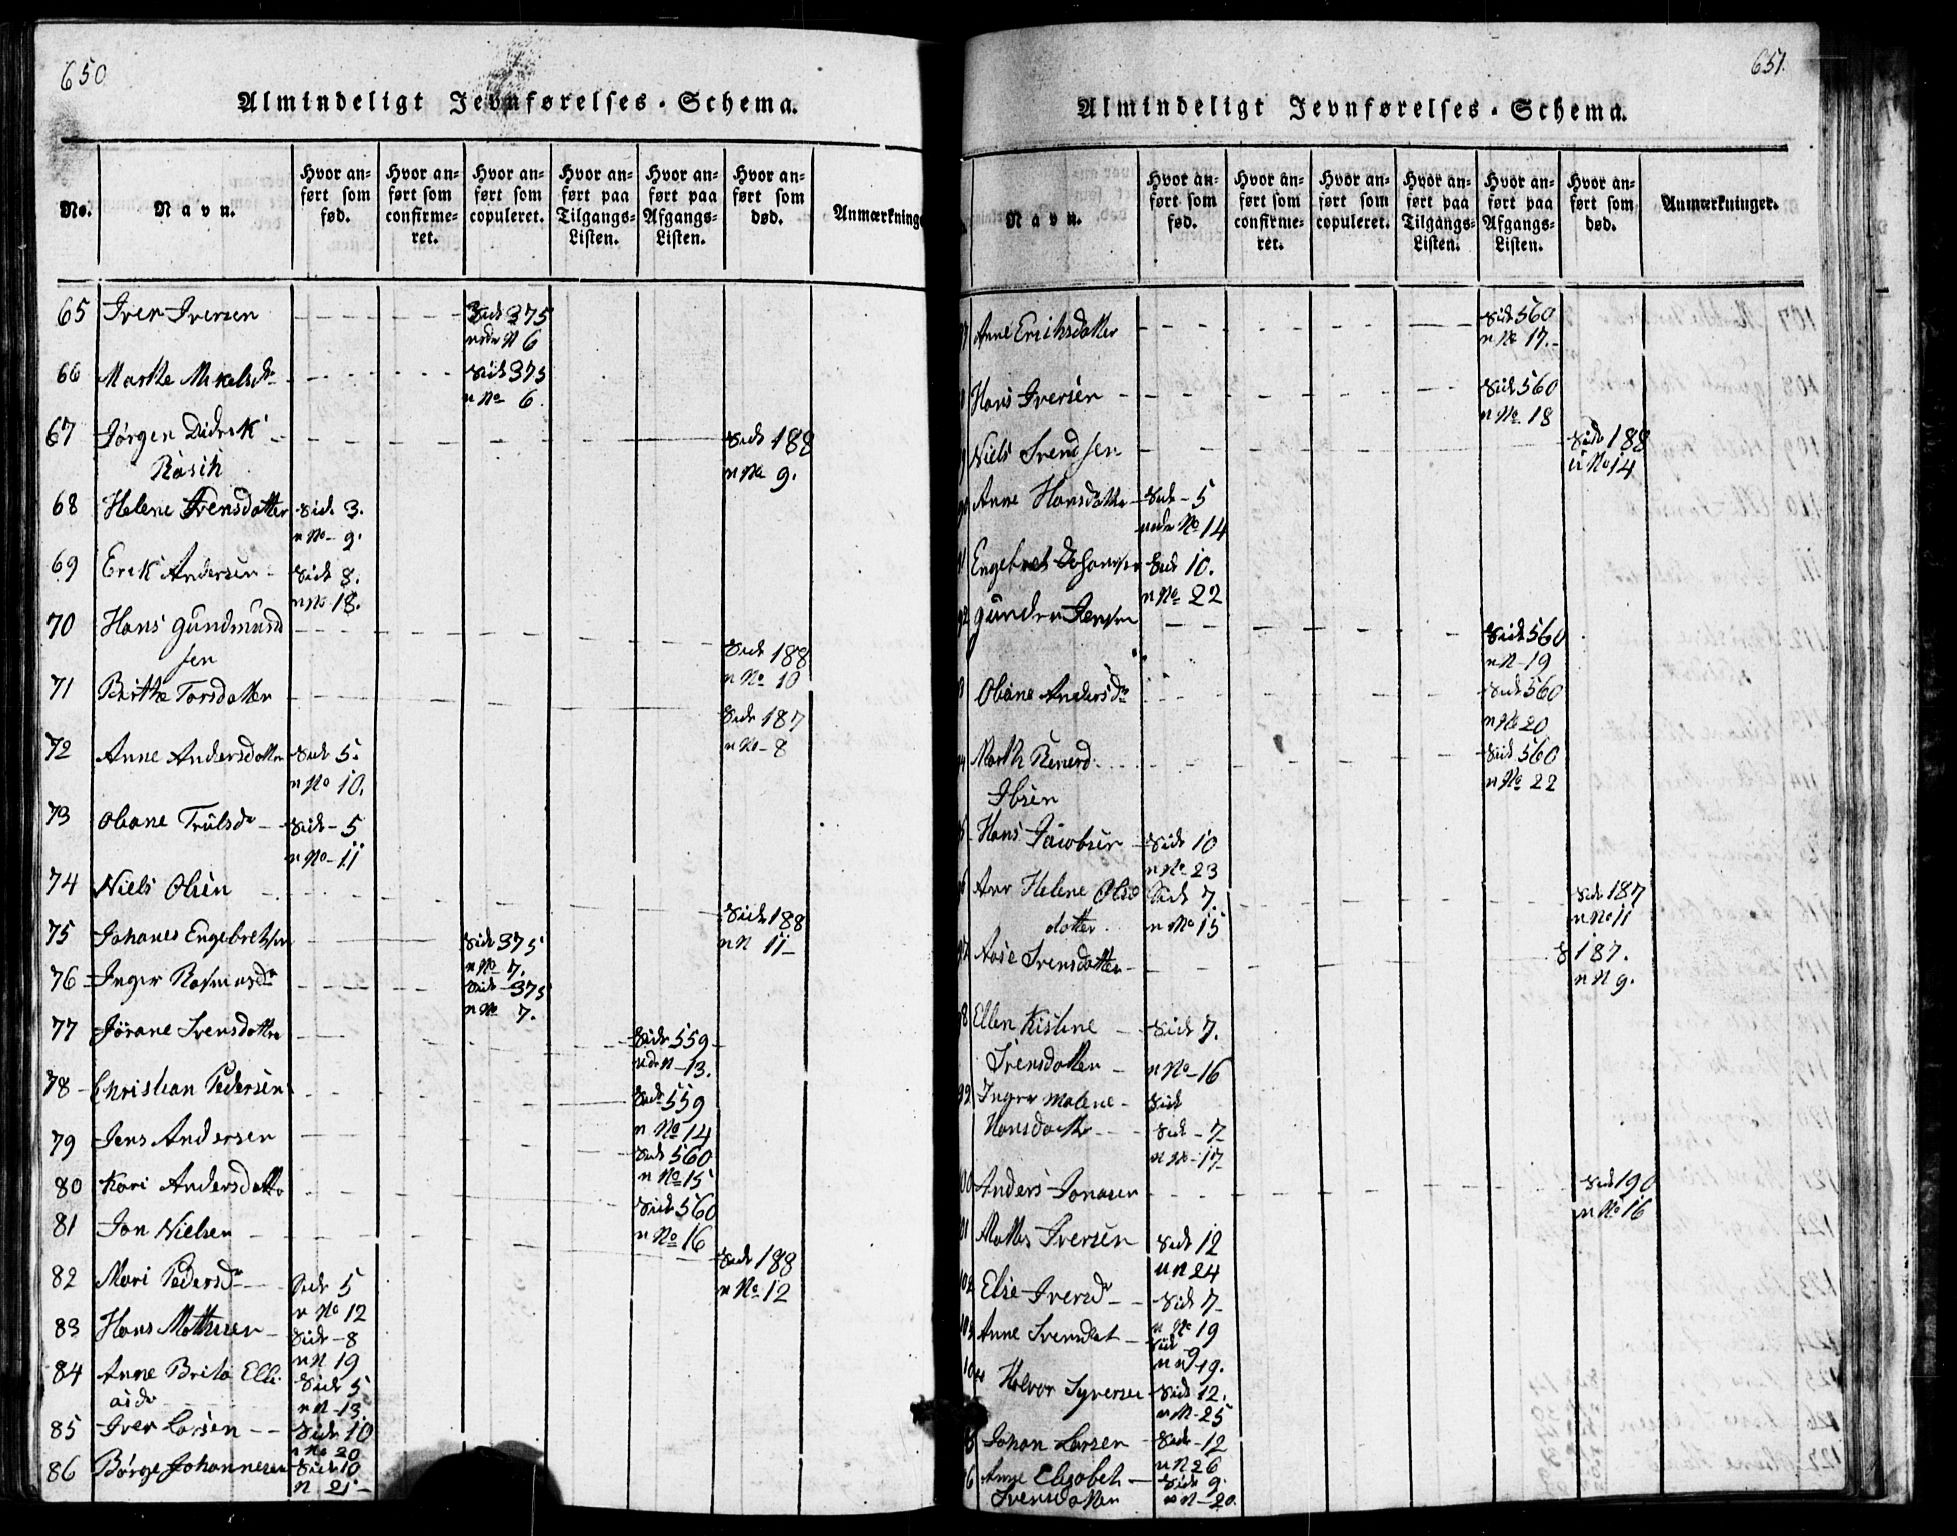 650
Almindeligt Jevnførelses-Schema.
No.
Navn.
Hvor an-
ført som
fød.
Hvor an-
ført som
confirme-
ret.
Hvor an-
ført som
copuleret.
Hvor an-
ført paa
Tilgangs-
Listen.
Hvor an-
ført paa
Afgangs-
Listen.
Hvor an-
ført som
død.
65 Iver Iversen Side 375
No 6
66 Marthe Mikelsdr Side 375
n No 6.
67 Jørgen Didrek Side 188
Rasch n No 9.
68 Helene Svensdatter Side 3.
n No 9.
69 Erek Andersen Side 8.
n No 18.
70 Hans Gundmund
sen Side 188
n No 10
71 Birthe Torsdatter Side 187
n No 8
72 Anne Andersdatter Side 5.
n No 10.
73 Oliane Trulsdr Side 5
n No 11
74 Niels Olsen Side 188
n N 11
75 Johanes Engebretsen Side 375
n No 7.
76 Inger Rasmusdr Side 375
n No 7.
77 Jørane Svensdatter Side 559
N 13.
78 Christian Pedersen Side 559
n No 14
79 Jens Andersen Side 560
n No 15
80 Kari Andersdatter Side 560
n No 16
81 Jon Nielsen Side 188
n No 12
82 Mari Pedersdr Side 5
n No 12
83 Hans Mathisen Side 8
n N 19
84 Anne Brita Elli
Side 5
n N 13
85 Iver Larsen Side 10
n No 20
86 Børge Johannesen Side 10
n 21
651.
Almindeligt Jevnførelses-Schema.
Navn.
Hvor an-
ført som
fød.
Hvor an-
ført som
confirme-
ret.
Hvor an-
ført som
copuleret.
Hvor an-
ført paa
Tilgangs-
Listen.
Hvor an-
ført paa
Afgangs-
Listen.
Hvor an-
ført som
død.
Anmærkninger.
Anne Erichsdatter Side 560
n No 17.
Hans Iversen Side 560
n No 18
Niels Svendsen Side 188
n No 14
Anne Hansdatter Side 5
No 14
Engebret Johansen Side 10.
n No 22
Gunder Jensen Side 560
n N 19
Oliane Andersdr Side 560
n No 20
Marth Side 560
Ibsen n No 22
Hans Jacobsen Side 10
n No 23
Ann Helene Olse Side 7. Side 187
datter. n No 15 n No 11
Aase Svensdatter S 187.
n N 9.
Ellen Kistine Side 7.
Svensdatter n No 16
Inger Malene Side
Hansdatter Side 7
n No 17
Anders Jonasen Side 190
n No 16
Mathis Iversen Side 12
u N 24
102 Else Iversdr Side 7
n No 19
103 Anne Svensdat Side 9
n N 19.
Halvor Syversen Side 12.
n N 25
Johan Larsen Side 12
u N 26
Anne Elisabeth Side 9.
Svensdatter n N 20.